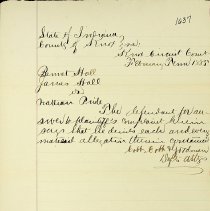 1637
State of Indiana
County of Knox ss
Knox Circuit Court
February Term 1885
James Hall
vs
Nathan Pride
The defendant for an
swer to plaintiff's complaint herein
says that he denies each and every
material allegation therein contained
Cobb, Cobb &
Defts Attys